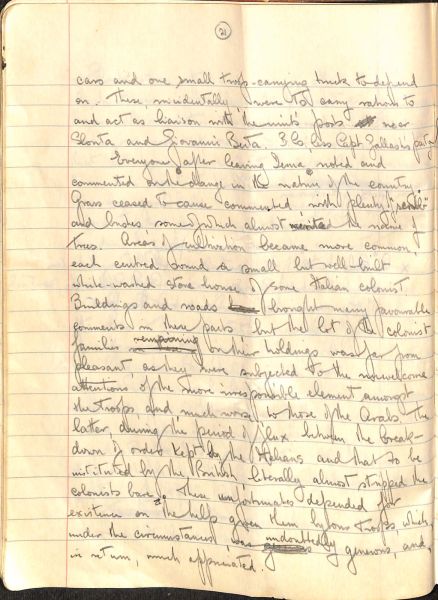 21
cars and one small troop-carrying truck to depend
on. These, incidentally, were to carry rations to
and act as liaison with the unit's posts near
Slonta and Giovanni Berta. B Co, less Capt Gallash's party
Everyone after leaving Tecnis noted and
commented on the change in the nature of the country.
Grass ceased to cause comment with plenty
and bushes some of which almost merited the name of
trees. Areas of cultivation became more common,
each centred round a small but well-built
white-washed stone house of some Italian colonist
Buildings and roads brought many favourable
comments in these parts but the lot of the colonist
families remaining on their holdings was far from
pleasant, as they were subjected to the unwelcome
attentions of the more irresponsible element amongst
the troops and much worse to those of the Arabs. The
latter, during the period of flux between the break-
down of order kept by the Italians and that to be
instituted by the British literally almost stripped the
colonists bare. These unfortunates depended for
existence on the help given them by our troops, which,
under the circumstances was undoubtedly generous, and,
in return, much appreciated.